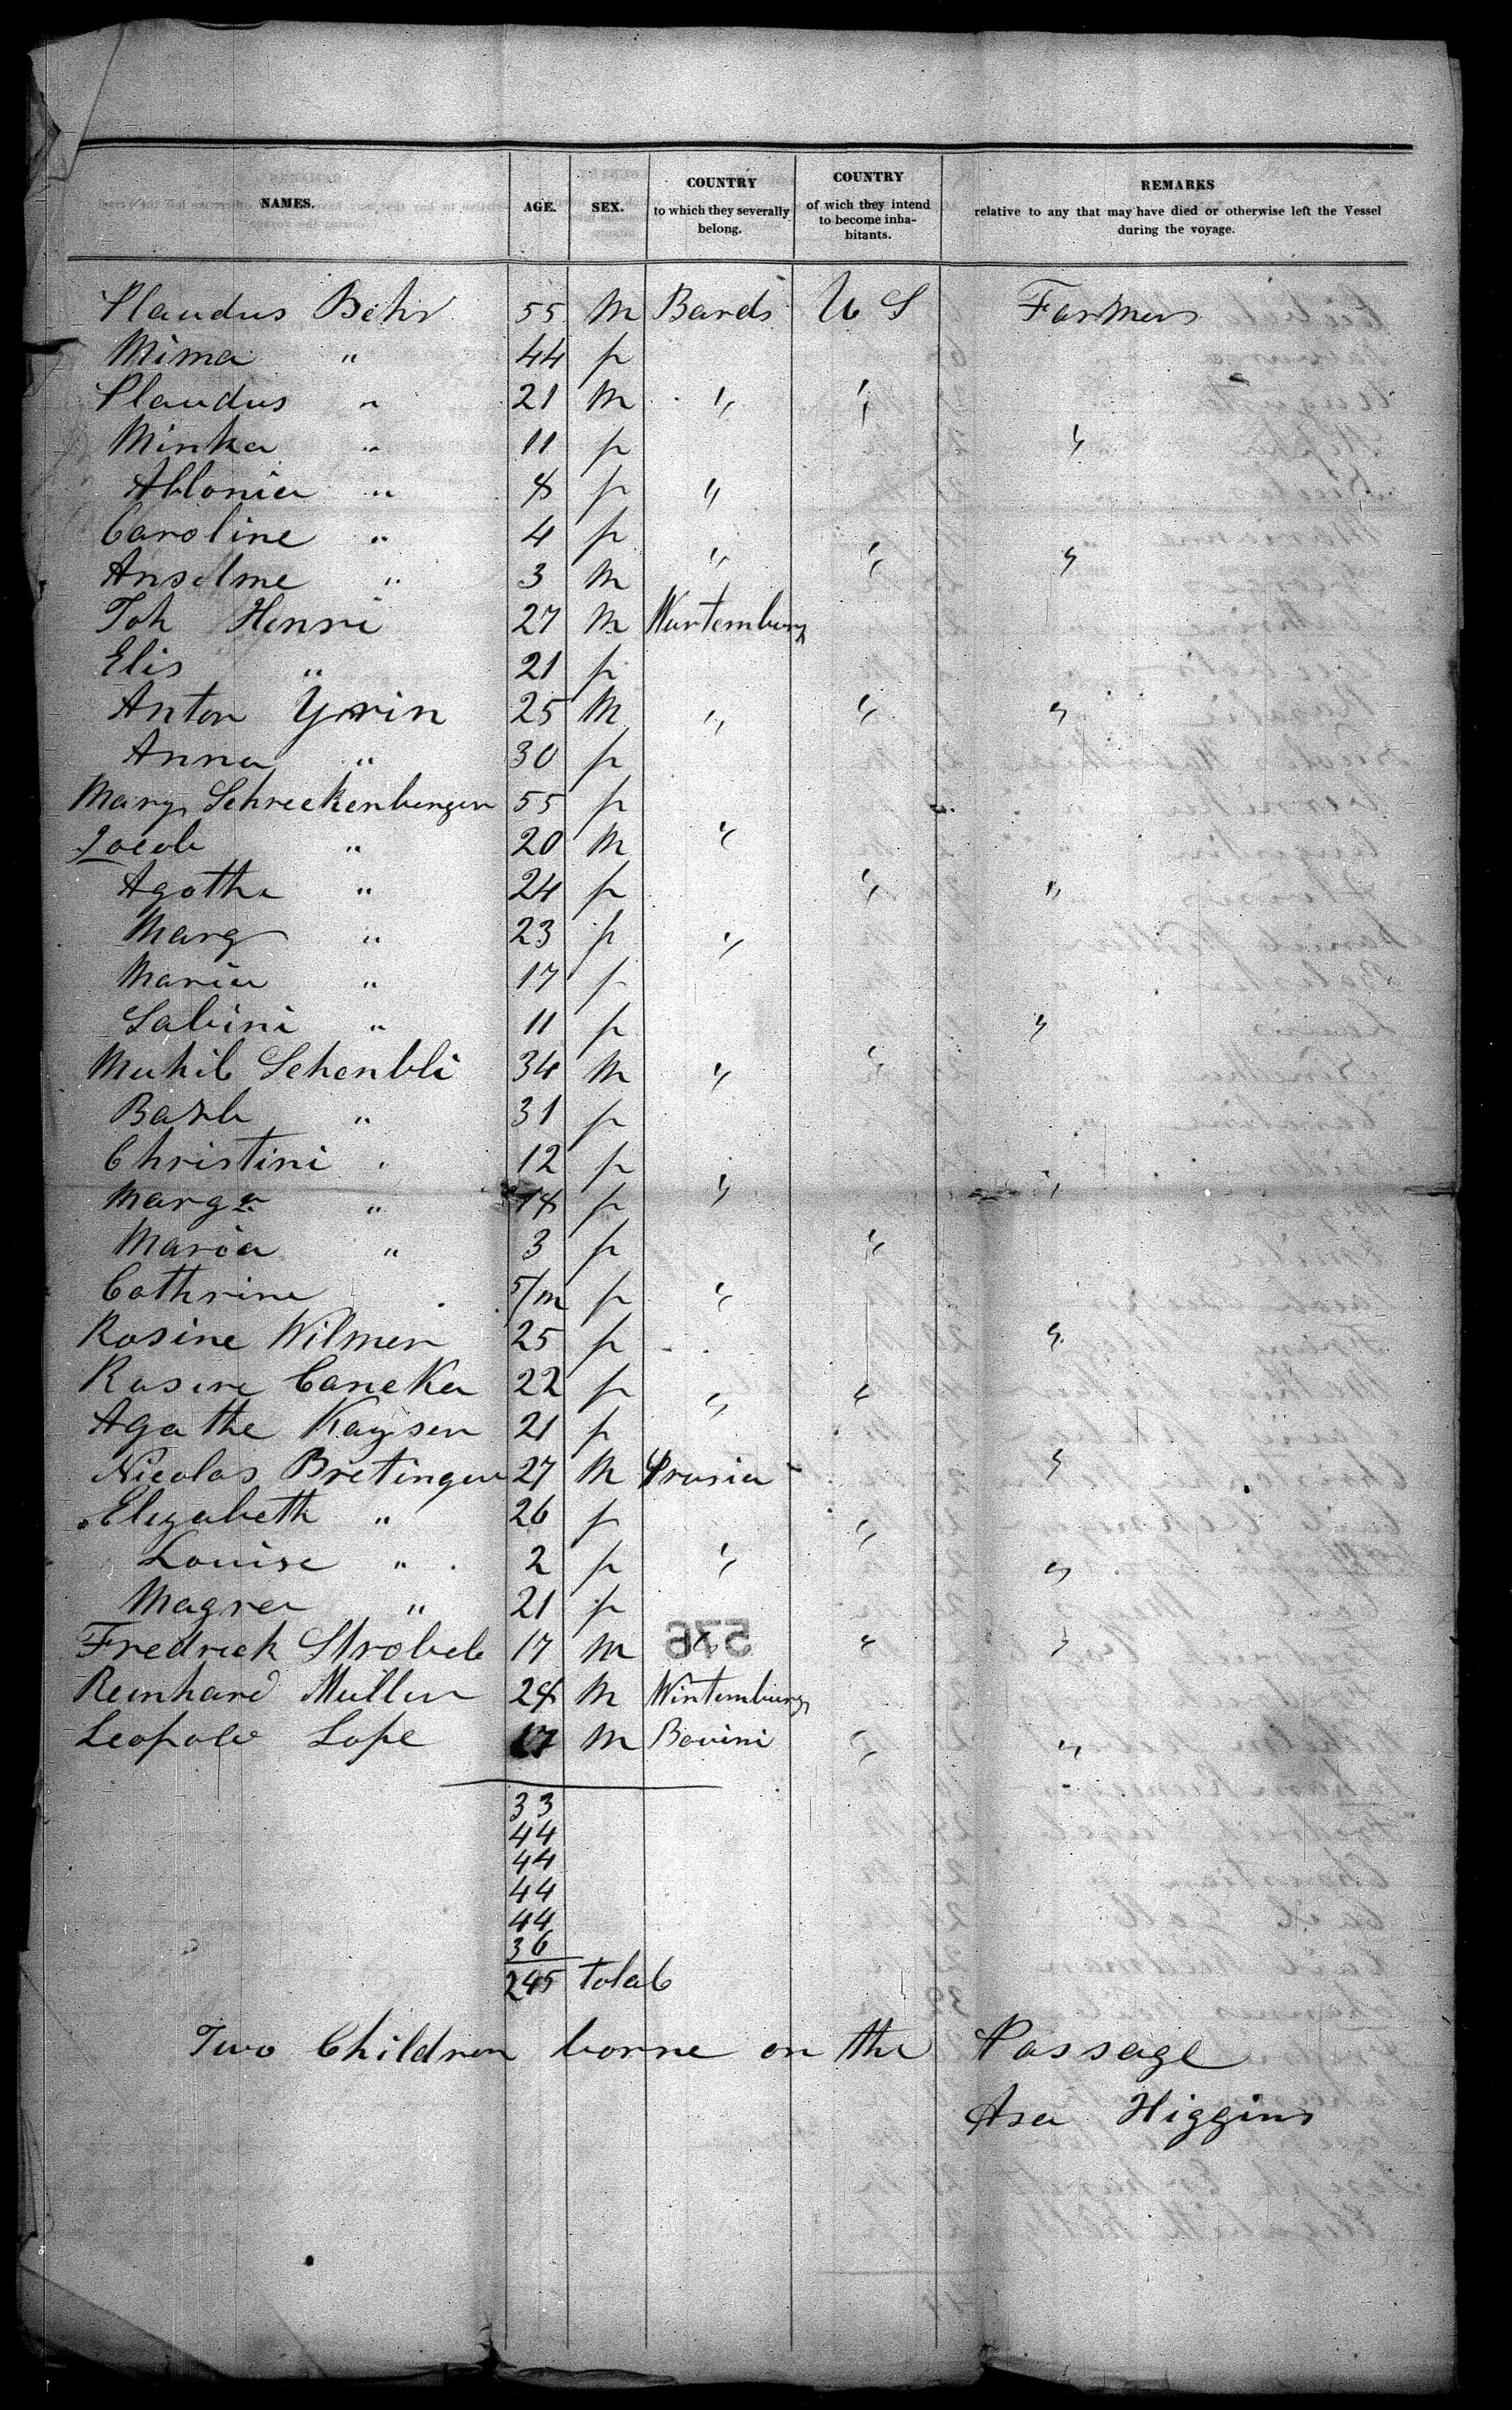 NAMES. AGE. SEX. COUNTRY to which they severally belong. COUNTRY of wich they intend to become inhabitants. REMARKS relative to any that may have died or otherwise left the Vessel during the voyage.
Plaudus Behr 55 M Bards U S Farmers
Mima " 44 f
Plaudus " 21 M " "
Minka " 11 f "
Ablonia " 8 f "
Caroline " 4 f " " "
Anselme " 3 M
Joh Henri 27 M Wurtemburg
Elis " 21 f
Anton Yrrin 25 M " " "
Anna " 30 f
Marg Schreckenberger 55 f
Jacob " 20 M "
Agatha " 24 f " "
Marg " 23 f "
Maria " 17 f
Sabini " 11 f "
Muhib Schenbli 34 M " "
Barb " 31 f
Christini " 12 f
Marga " 18 f " "
Maria " 3 f "
Cathrine 5/m f "
Rosine Wilmer 25 f "
Rosine Caneka 22 f " "
Agathe Kayser 21 f
Nicolas Bretinger 27 M Prusia "
Elizabeth " 26 f "
Louise " 2 f " "
Magrea " 21 f
Fredrick Strobel 17 M " "
576
Reinhard Muller 28 M Wirtemburg
Leopold Lope 17 M " "
33
44
44
44
44
36
245 total
Two Children borne on the Passage
Asa Higgins